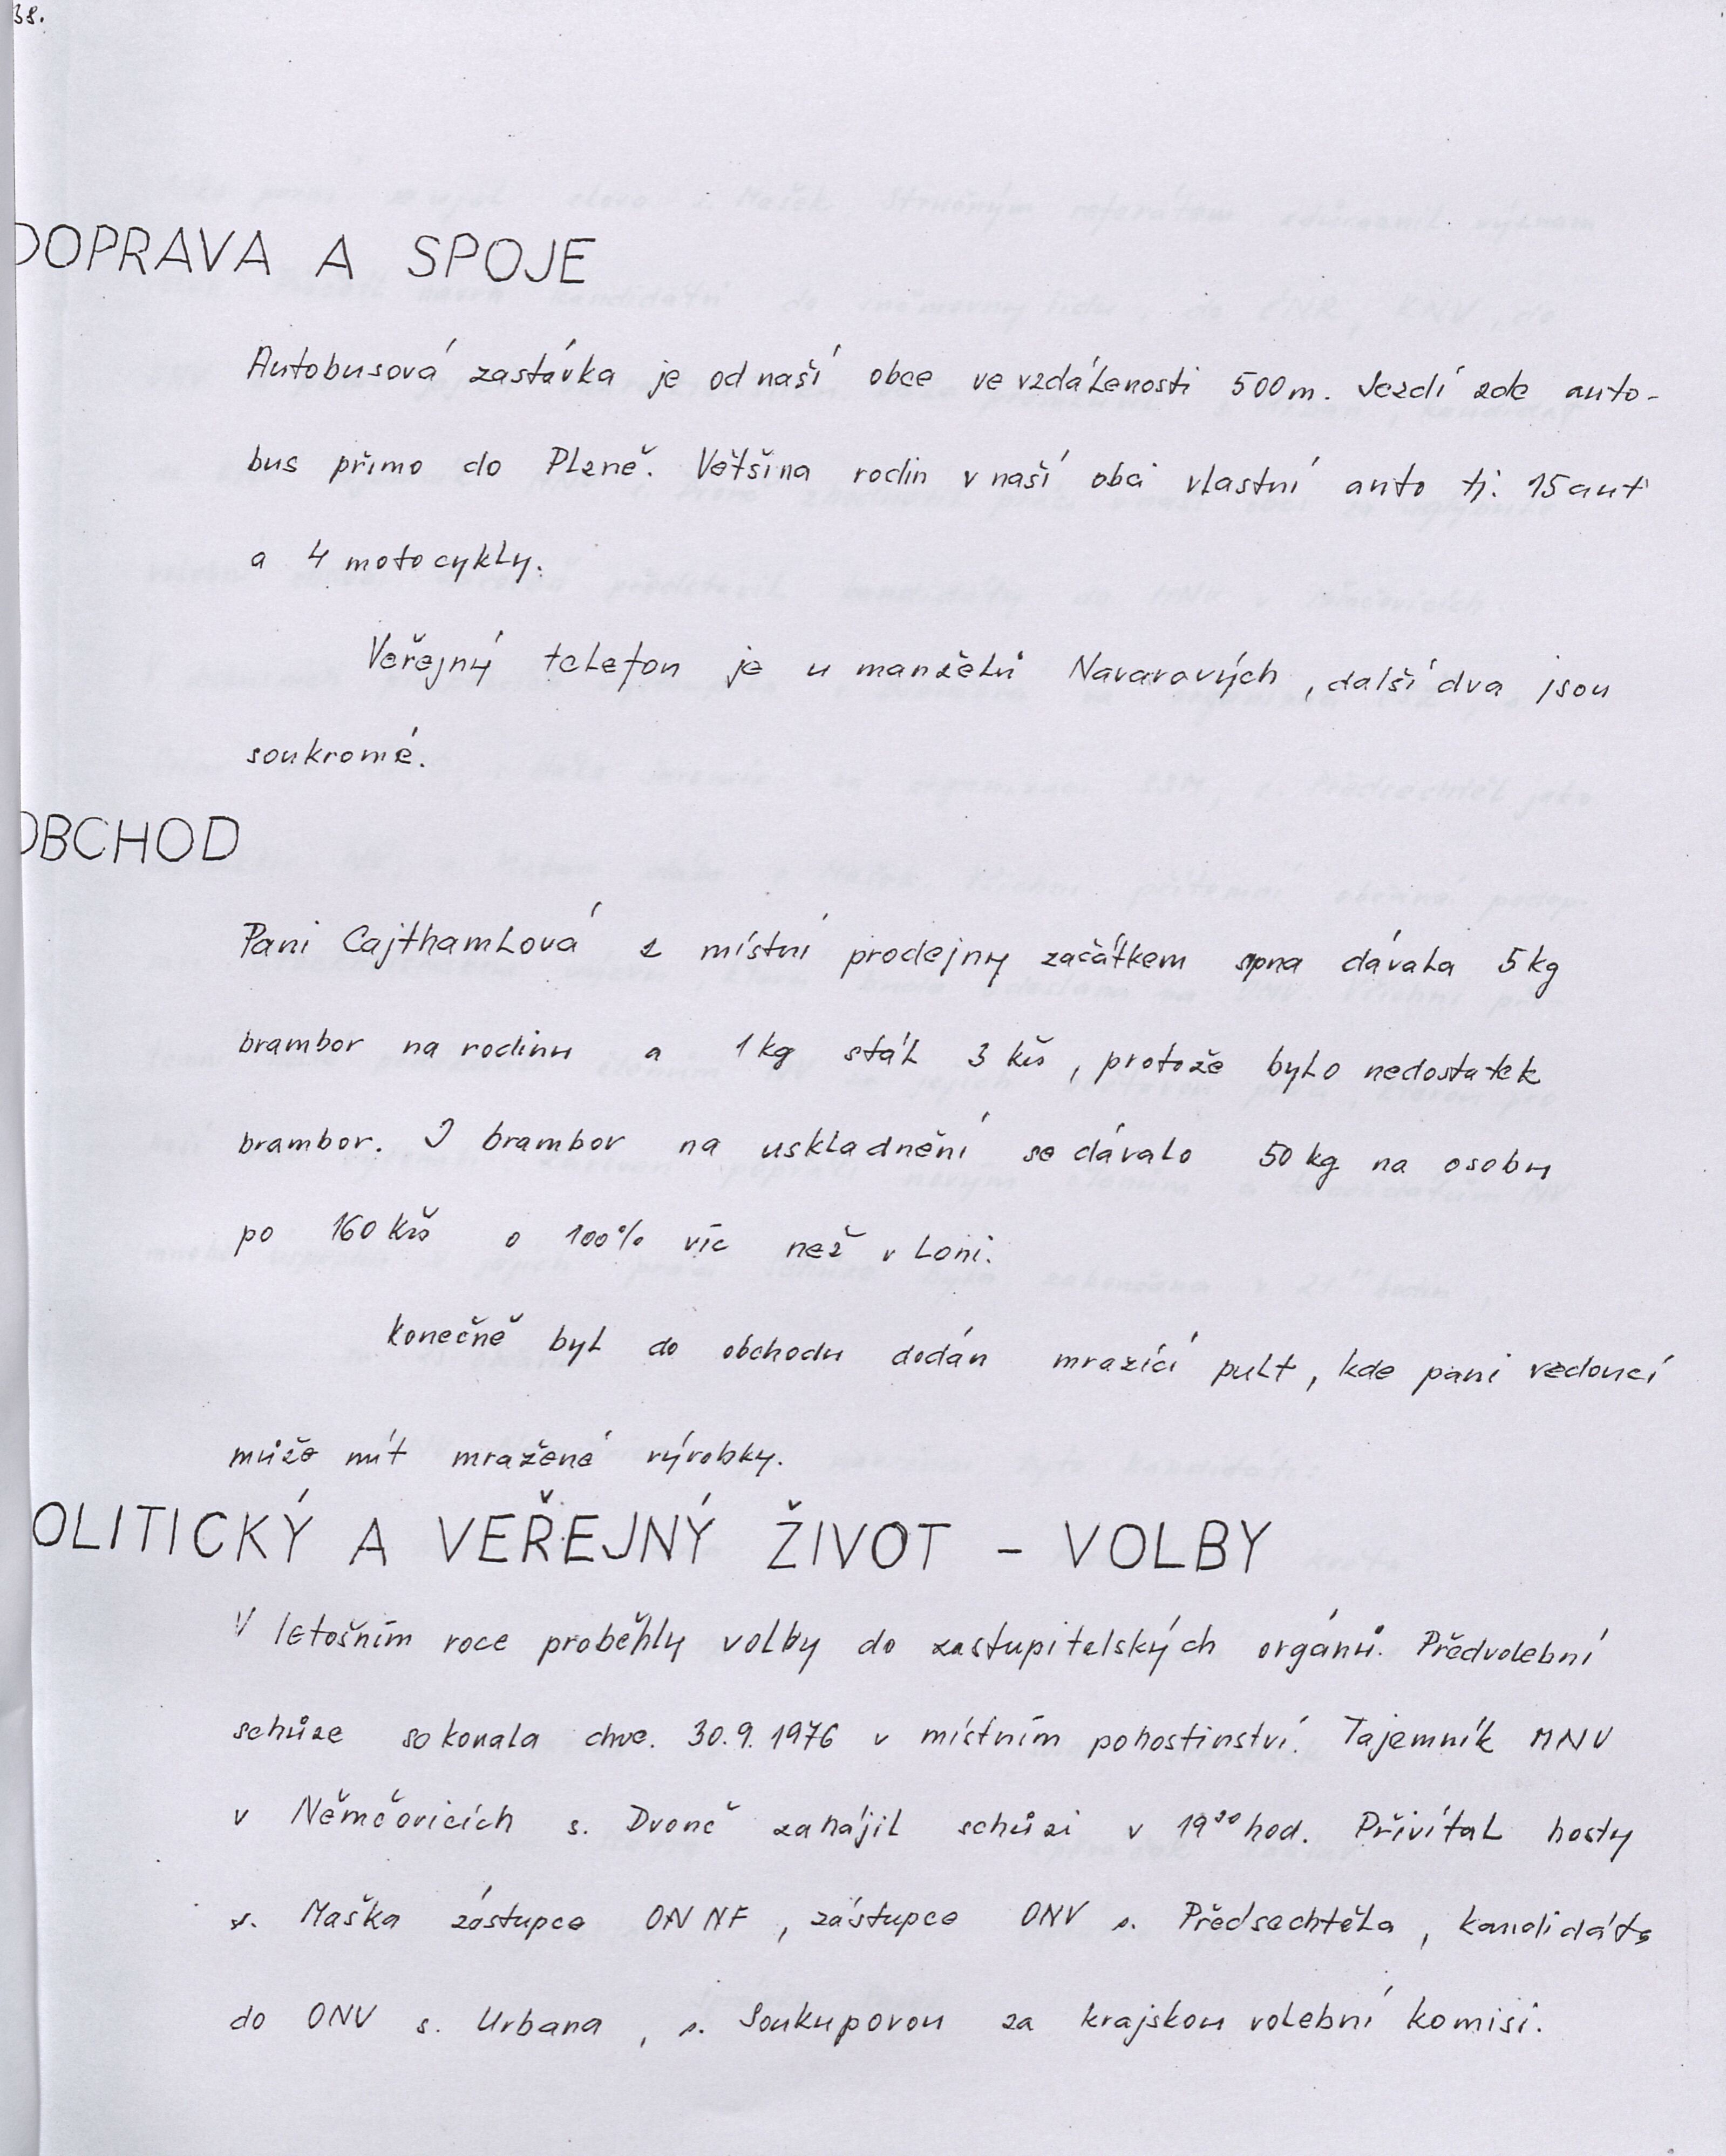 38.
DOPRAVA A SPOJE
Autobusová zastávka je od naší obce ve vzdálenosti 500m. Jezdí zde auto-
bus přímo do Plzně. Většina rodin v naší obci vlastní auto tj. 15 aut
a 4 motocykly.
Veřejný telefon je u manželů Navarových, další dva jsou
soukromé.
OBCHOD
Paní Cajthamlová z místní prodejny začátkem srpna dávala 5 kg
brambor na rodinu a 1 kg stál 3 kčs, protože bylo nedostatek
brambor. I brambor na uskladnění se dávalo 50 kg na osobu
po 160 Kčs o 100% víc než v loni.
Konečně byl do obchodu dodán mrazící pult, kde paní vedoucí
může mít mražené výrobky.
OLITICKÝ A VEŘEJNÝ ŽIVOT - VOLBY
V letošním roce proběhly volby do zastupitelských orgánů. Předvolební
schůze se konala dne. 30.9.1976 v místním pohostinství. Tajemník MNV
v Němčovicích s. Dvonč zahájil schůzi v 19³⁰ hod. Přivítal hosty
s. Maška zástupce ONNF, zástupce ONV s. Předsechtěla, kandidáta
do ONV s. Urbana, s. Soukupovou za krajskou volební komisi.